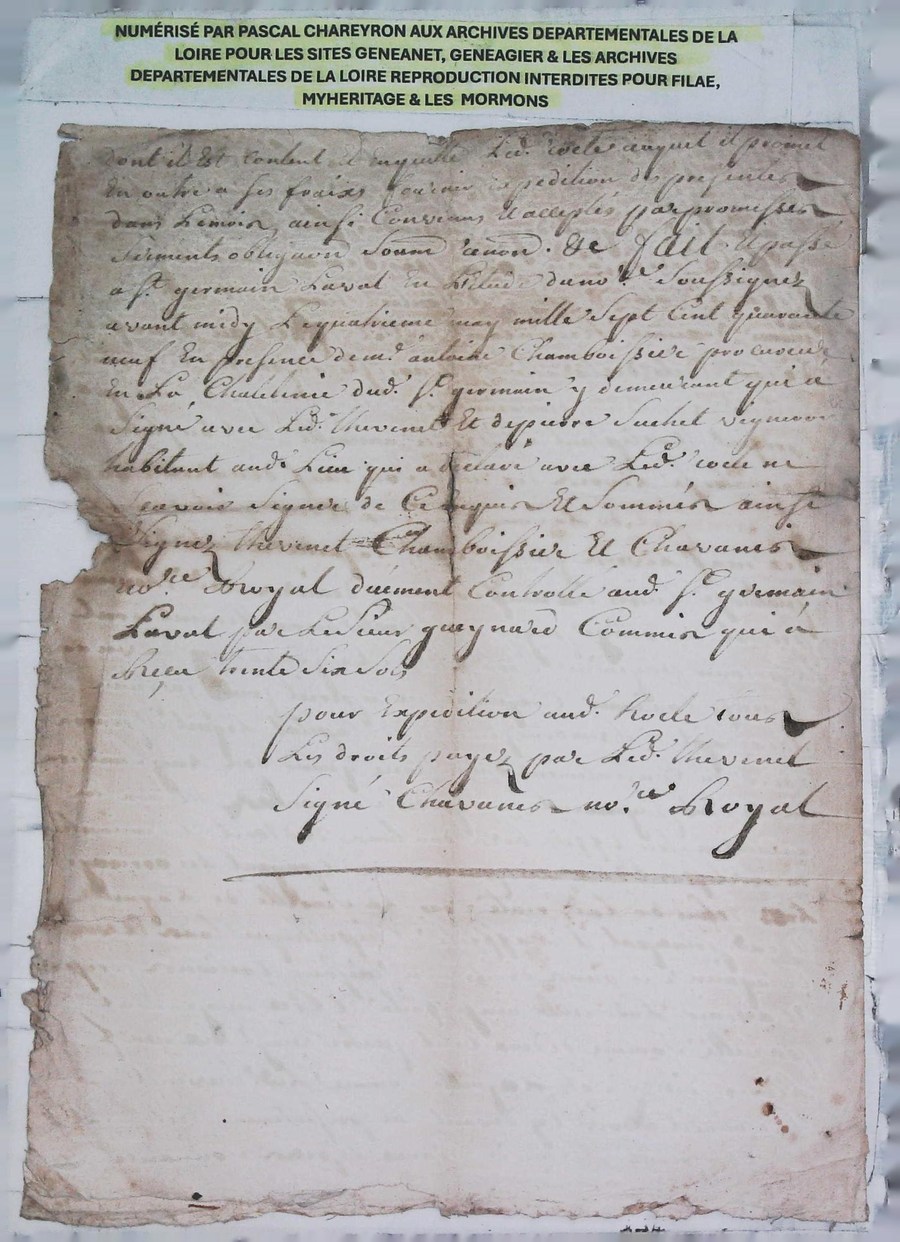 NUMÉRISÉ PAR PASCAL CHAREYRON AUX ARCHIVES DEPARTEMENTALES DE LA
LOIRE POUR LES SITES GENEANET, GENEAGIER & LES ARCHIVES
DEPARTEMENTALES DE LA LOIRE REPRODUCTION INTERDITES POUR FILAE,
MYHERITAGE & LES MORMONS
dont il Est content et Enquitte Led. auquel il promet
En outre a ses fraix fournir expedition des presentes
dans Lemois, ainsi Convenus et acceptés par promesses
serments obligaon soum renon. &c fait et passé
a st. germain Laval En L'etude dunore. Soussignez
avant midy Lequatrieme may mille Sept Cent quarante
neuf En presence deme. antoine Chamboissier procureur
En La Chatelnie dud. st. germain y demeurant qui a
Signé avec Led. thevenet Et depierre Suchet vigneron
habitant aud. Lieu qui a déclaré avec Led. ne
scavoir Signer de Cerequis Et Sommés ainsi
Signez thevenet Chamboissier Et Chavanes
nore. Royal duement Controllé aud. st. germain
Laval par LeSieur guaynard Commis qui a
Reçu trente Six Sols
pour Expedition aud. tous
Les droits payez par Led. thevenet
Signé Chavanes nore. Royal